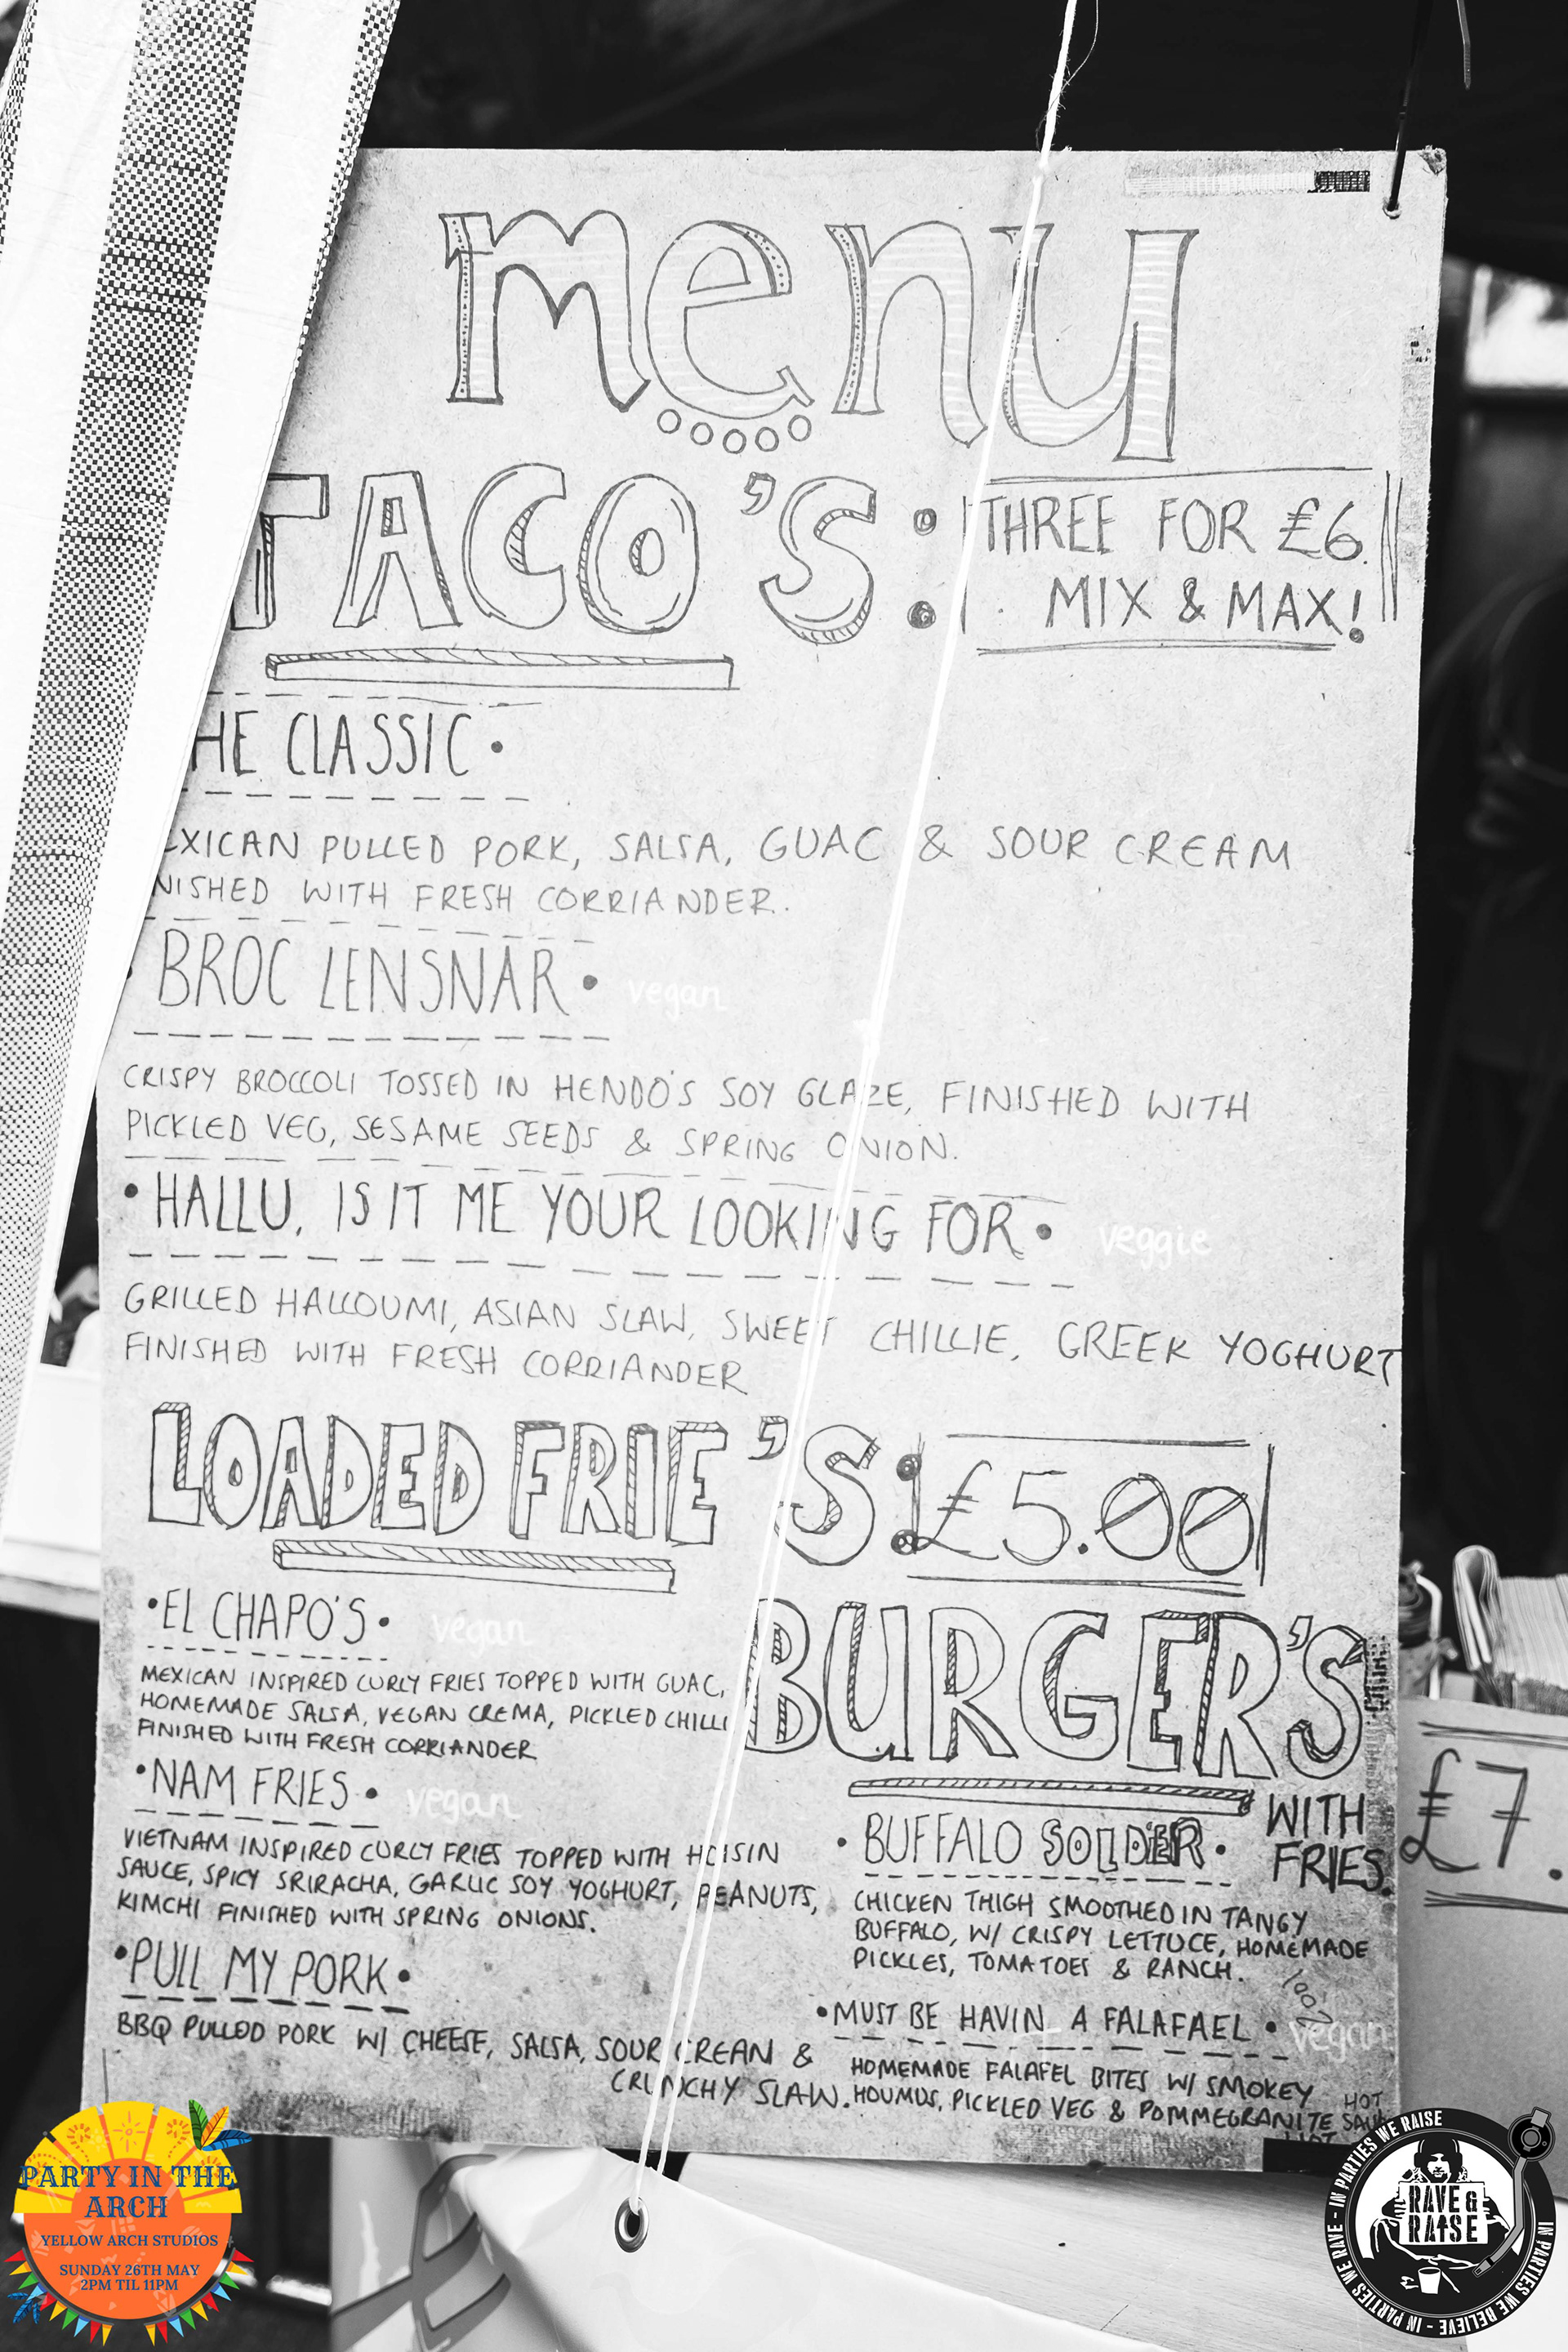 menu
TACO'S:
THREE FOR £6.
MIX & MAX!
HE CLASSIC •
EXICAN PULLED PORK, SALSA, GUAC & SOUR CREAM
NISHED WITH FRESH CORRIANDER.
• BROC LENSNAR • vegan
CRISPY BROCCOLI TOSSED IN HENDO'S SOY GLAZE, FINISHED WITH
PICKLED VEG, SESAME SEEDS & SPRING ONION.
• HALLU, IS IT ME YOUR LOOKING FOR • veggie
GRILLED HALLOUMI, ASIAN SLAW, SWEET CHILLIE, GREEK YOGHURT
FINISHED WITH FRESH CORRIANDER
LOADED FRIE'S: £5.00
• EL CHAPO'S • vegan
MEXICAN INSPIRED CURLY FRIES TOPPED WITH GUAC,
HOMEMADE SALSA, VEGAN CREMA, PICKLED CHILLI
FINISHED WITH FRESH CORRIANDER
• NAM FRIES • vegan
VIETNAM INSPIRED CURLY FRIES TOPPED WITH HOISIN
SAUCE, SPICY SRIRACHA, GARLIC SOY YOGHURT, PEANUTS,
KIMCHI FINISHED WITH SPRING ONIONS.
• PULL MY PORK •
BBQ PULLED PORK W/ CHEESE, SALSA, SOUR CREAN &
CRUNCHY SLAW.
BURGER'S
WITH
FRIES.
£7.
• BUFFALO SOLDER •
CHICKEN THIGH SMOOTHED IN TANGY
BUFFALO, W/ CRISPY LETTUCE, HOMEMADE
PICKLES, TOMATOES & RANCH.
• MUST BE HAVIN A FALAFAEL • 100% vegan
HOMEMADE FALAFEL BITES W/ SMOKEY
HOUMUS, PICKLED VEG & POMMEGRANITE HOT
PARTY IN THE
ARCH
YELLOW ARCH STUDIOS
SUNDAY 26TH MAY
2PM TIL 11PM
RAVE &
RAISE
IN PARTIES WE RAVE - IN PARTIES WE RAISE
IN PARTIES WE BELIEVE -